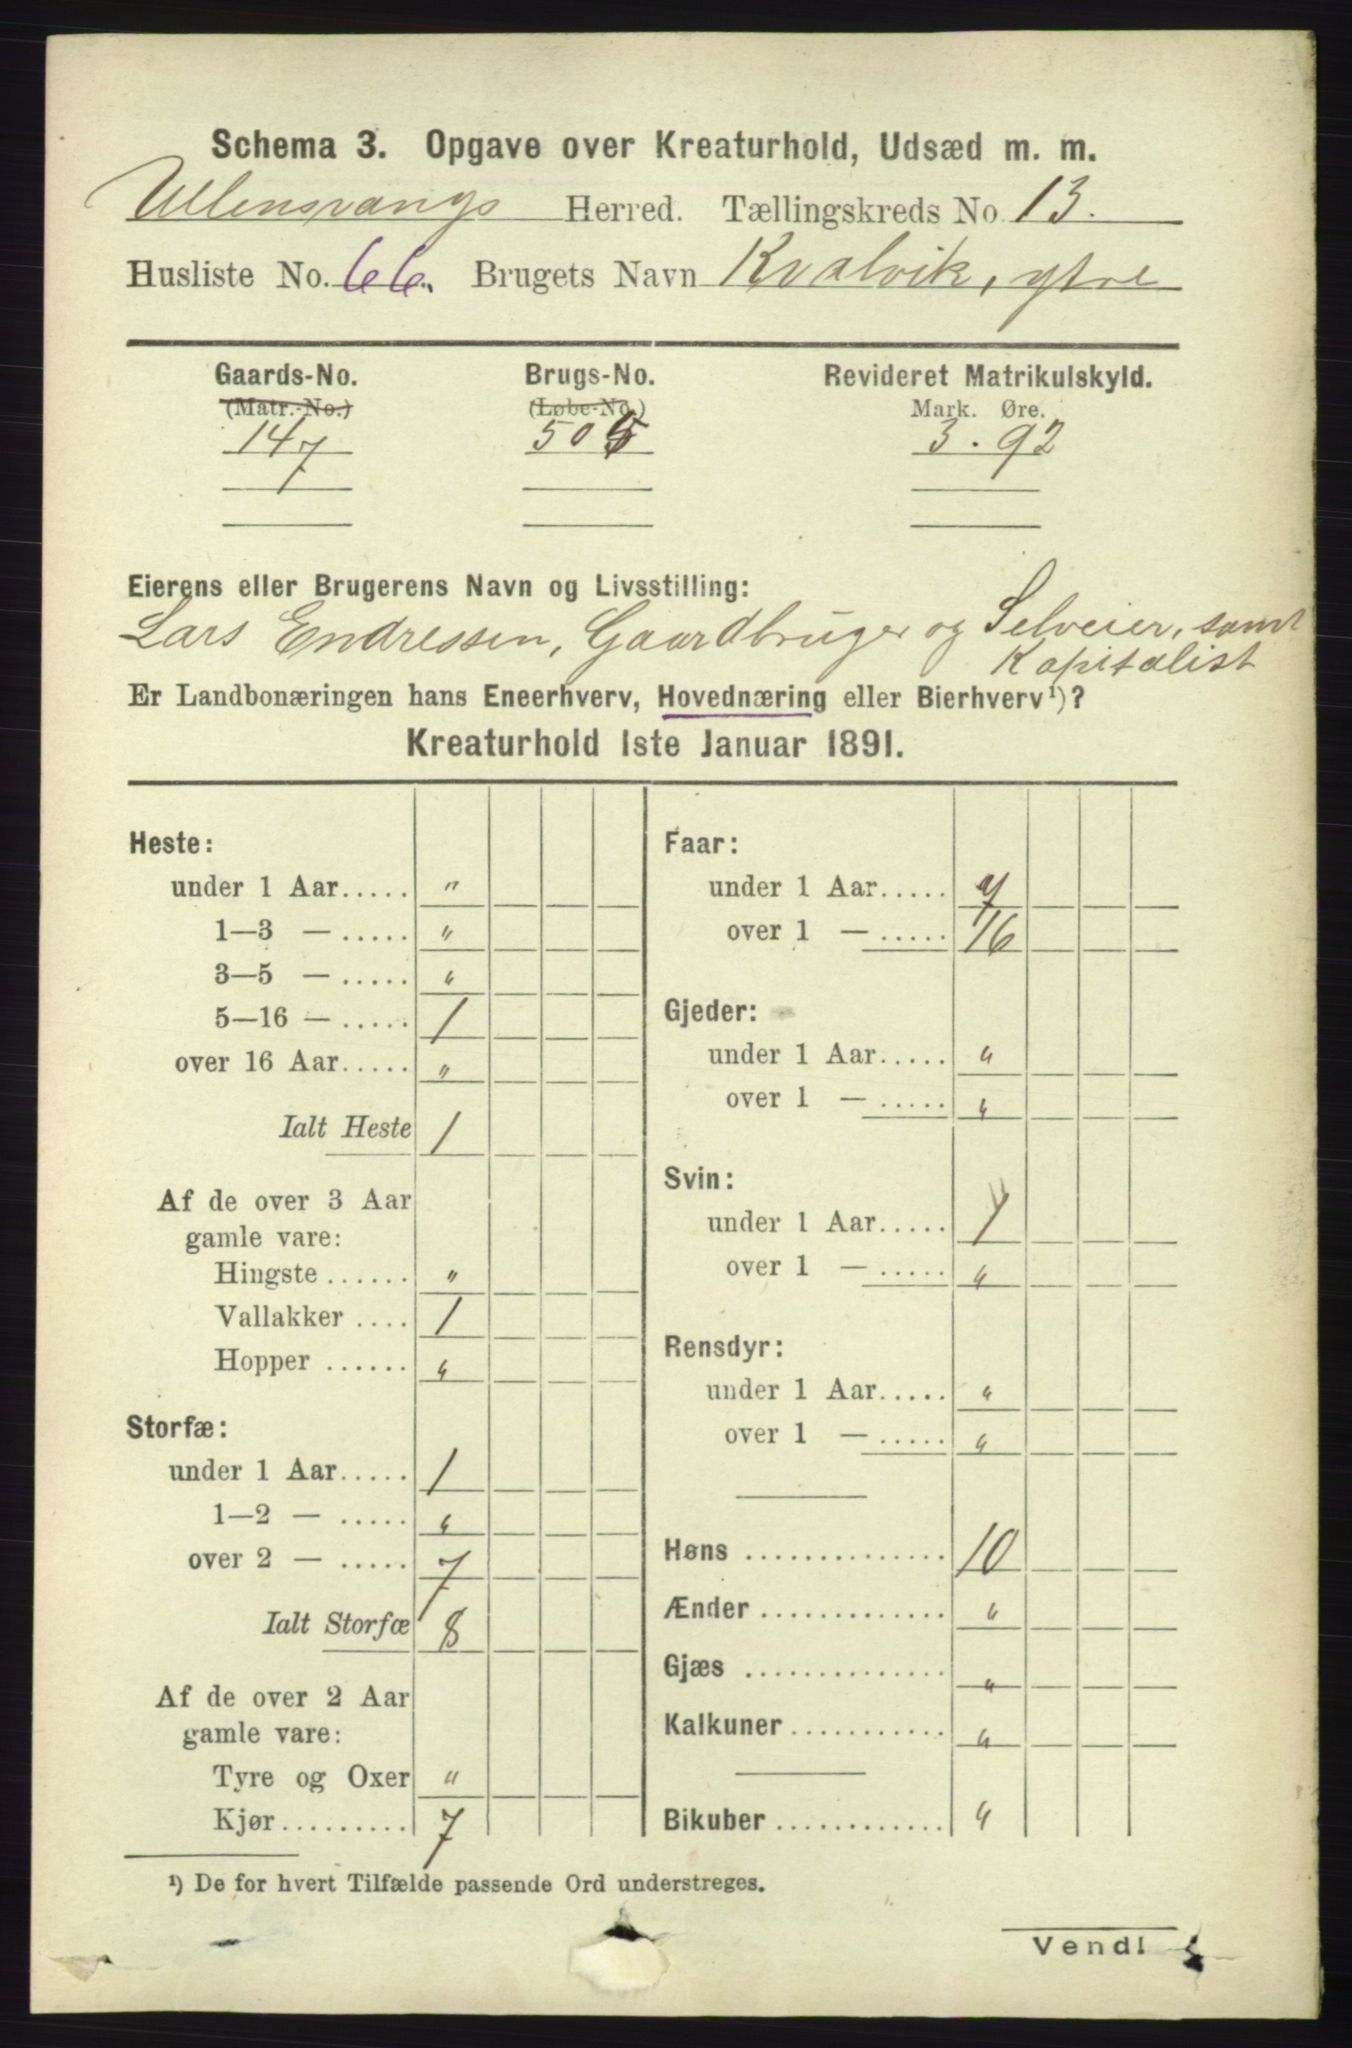 Schema 3. Opgave over Kreaturhold, Udsæd m. m.
Ullensvangs Herred. Tællingskreds No 13.
Husliste No. 66. Brugets Navn Kvalvik, ytre
Gaards-No. Brugs-No. Revideret Matrikulskyld.
(Matr.-No.) (Løbe-No.) Mark. Øre.
147 505 3. 92
Eierens eller Brugerens Navn og Livsstilling:
Lars Endressen, Gaardbruger og Selveier, samt
Kapitalist
Er Landbonæringen hans Eneerhverv, Hovednæring eller Bierhverv¹)?
Kreaturhold 1ste Januar 1891.
Heste:
under 1 Aar..... "
1—3 — ..... "
3—5 — ..... "
5—16 — ..... 1
over 16 Aar..... "
Ialt Heste 1
Af de over 3 Aar
gamle vare:
Hingste ...... "
Vallakker .... 1
Hopper ...... "
Storfæ:
under 1 Aar..... 1
1—2 — ..... "
over 2 — ..... 7
Ialt Storfæ 8
Af de over 2 Aar
gamle vare:
Tyre og Oxer "
Kjør......... 7
Faar:
under 1 Aar.....
over 1 — ..... 16
Gjeder:
under 1 Aar..... "
over 1 — ..... "
Svin:
under 1 Aar.....
over 1 — ..... "
Rensdyr:
under 1 Aar..... "
over 1 — ..... "
Høns .............. 10
Ænder ............. "
Gjæs .............. "
Kalkuner ........... "
Bikuber ............ "
¹) De for hvert Tilfælde passende Ord understreges.
Vend!